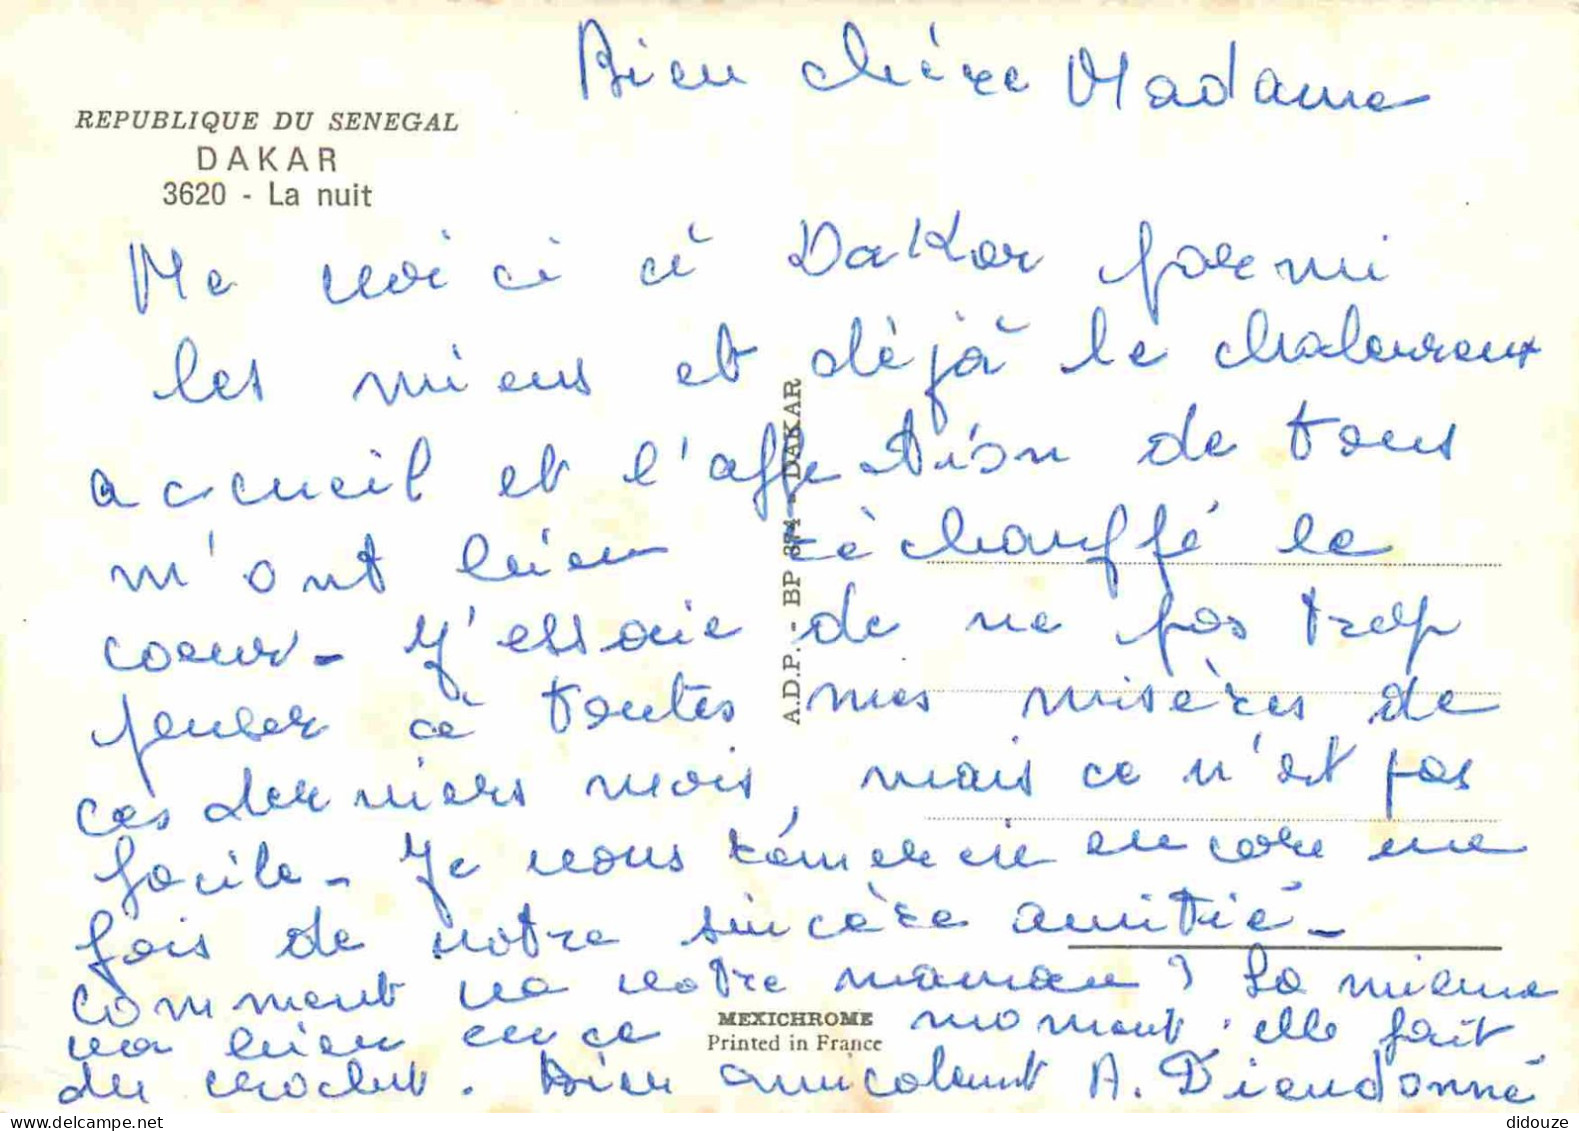 Bien chère Madame
REPUBLIQUE DU SENEGAL
DAKAR
3620 - La nuit
Me voici à Dakar parmi
les miens et déjà le chaleureux
accueil et l'affection de tous
m'ont bien réchauffé le
coeur - J'essaie de ne pas trop
penser à toutes mes misères de
ces derniers mois, mais ce n'est pas
facile - Je vous remercie encore une
fois de votre sincère amitié -
comment va votre maman ? La mienne
va bien en ce moment. elle fait
du crochet. Bien amicalement A. Dieudonné
A.D.P. - BP 374 - DAKAR
MEXICHROME
Printed in France
didouze